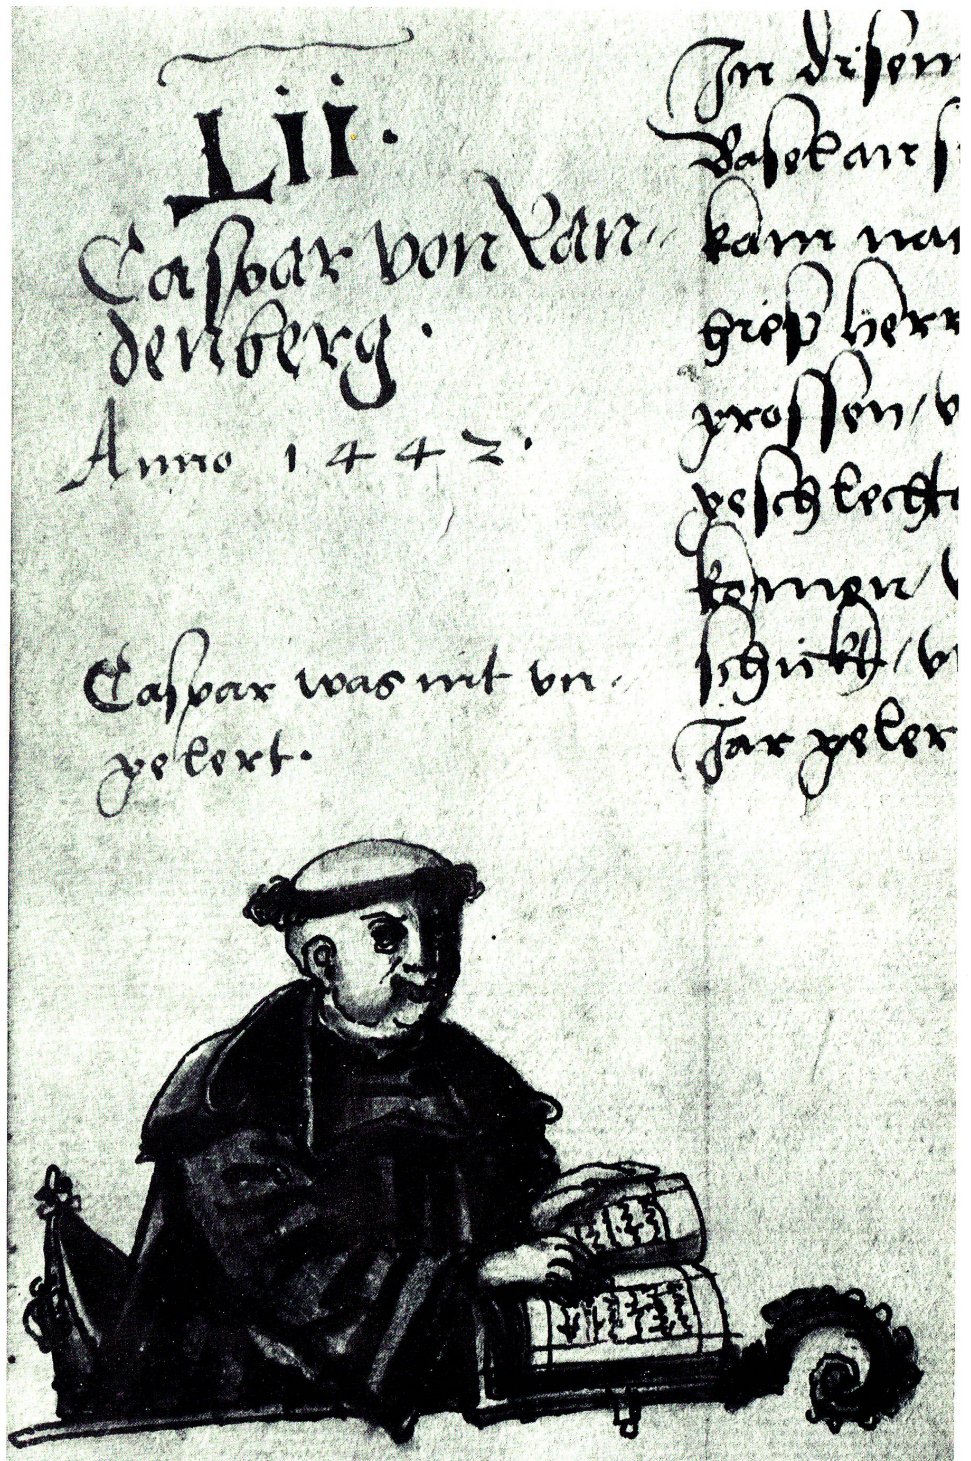 Lii.
Caspar von Lan-
denberg.
Anno 1442.
Caspar was nit vn-
gelert.
In disem
kam
herr
grossen / v
geschlecht
komen / v
schickt / v
Jar geler